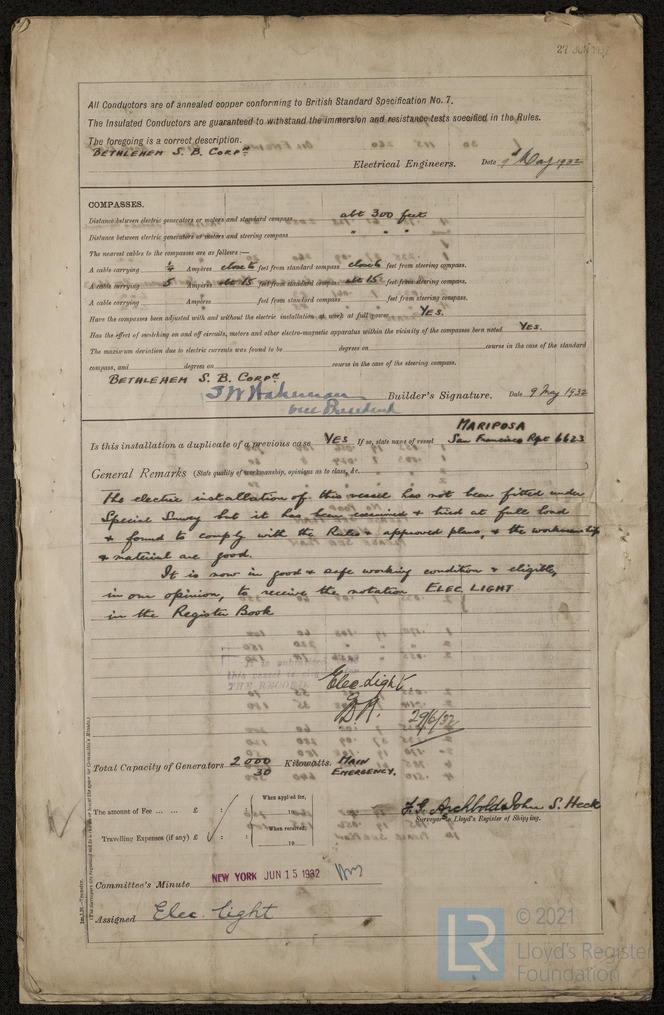 27 JUN
All Conductors are of annealed copper conforming to British Standard Specification No. 7.
The Insulated Conductors are guaranteed to withstand the immersion and resistance tests specified in the Rules.
The foregoing is a correct description.
BETHLEHEM S. B. CORPN
Electrical Engineers. Date 9 May 1932
COMPASSES.
Distance between electric generators or motors and standard compass abt 300 feet
Distance between electric generators or motors and steering compass " " "
The nearest cables to the compasses are as follows:—
A cable carrying 1/4 Ampères close to feet from standard compass close to feet from steering compass.
A cable carrying 5 Ampères abt 15 feet from standard compass abt 15 feet from steering compass.
A cable carrying Ampères feet from standard compass feet from steering compass.
Have the compasses been adjusted with and without the electric installation at work at full power YES.
Has the effect of switching on and off circuits, motors and other electro-magnetic apparatus within the vicinity of the compasses been noted YES.
The maximum deviation due to electric currents was found to be degrees on course in the case of the standard
compass, and degrees on course in the case of the steering compass.
BETHLEHEM S. B. CORPN
Vice President Builder's Signature. Date 9 May 1932
Is this installation a duplicate of a previous case YES If so, state name of vessel MARIPOSA
San Francisco Rpt 6623
General Remarks (State quality of workmanship, opinions as to class, &c.
The electric installation of this vessel has not been fitted under
Special Survey but it has been examined & tried at full load
& found to comply with the Rules & approved plans, & the workmanship
& material are good.
It is now in good & safe working condition & eligible,
in our opinion, to receive the notation ELEC. LIGHT
in the Register Book
Elec. Light
29/6/32
Total Capacity of Generators 2000 Kilowatts. MAIN
30 EMERGENCY.
The amount of Fee ... ... £ : : When applied for,
19
Travelling Expenses (if any) £ : : When received,
19
F.G. Archbold & John S. Heck
Surveyors to Lloyd's Register of Shipping.
Committee's Minute NEW YORK JUN 15 1932
Assigned Elec. Light
© 2021
LR Lloyd's Register
Foundation